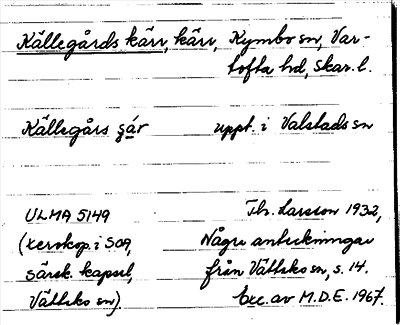 Källegårds kärr, kärr, Kymbo sn, Var-
tofta hd, Skar. l.
Källegårs çár uppt. i Valstads sn
ULMA 5149 Th. Larsson 1932,
(xerokop. i SOA, Några anteckningar
särsk. kapsel, från Vättlösa sn, s. 14.
Exc. av M.D.E. 1967.